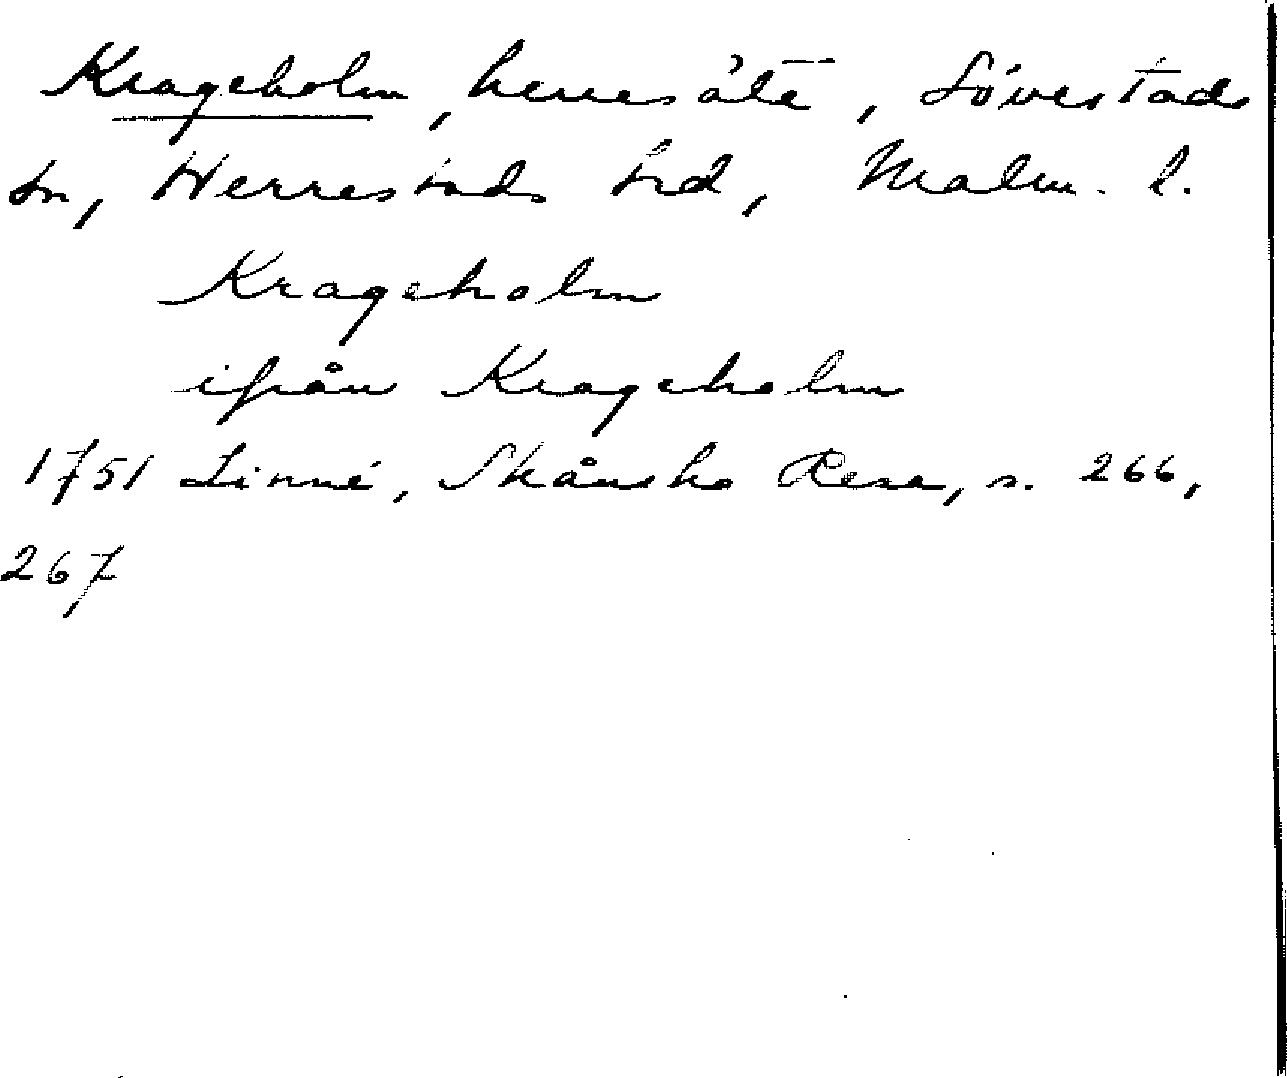 Krageholm, herresäte, Sövestads
sn, Herrestads hd, Malm. l.
Krageholm
ifrån Krageholm
1751 Linné, Skånska Resa, s. 266,
267